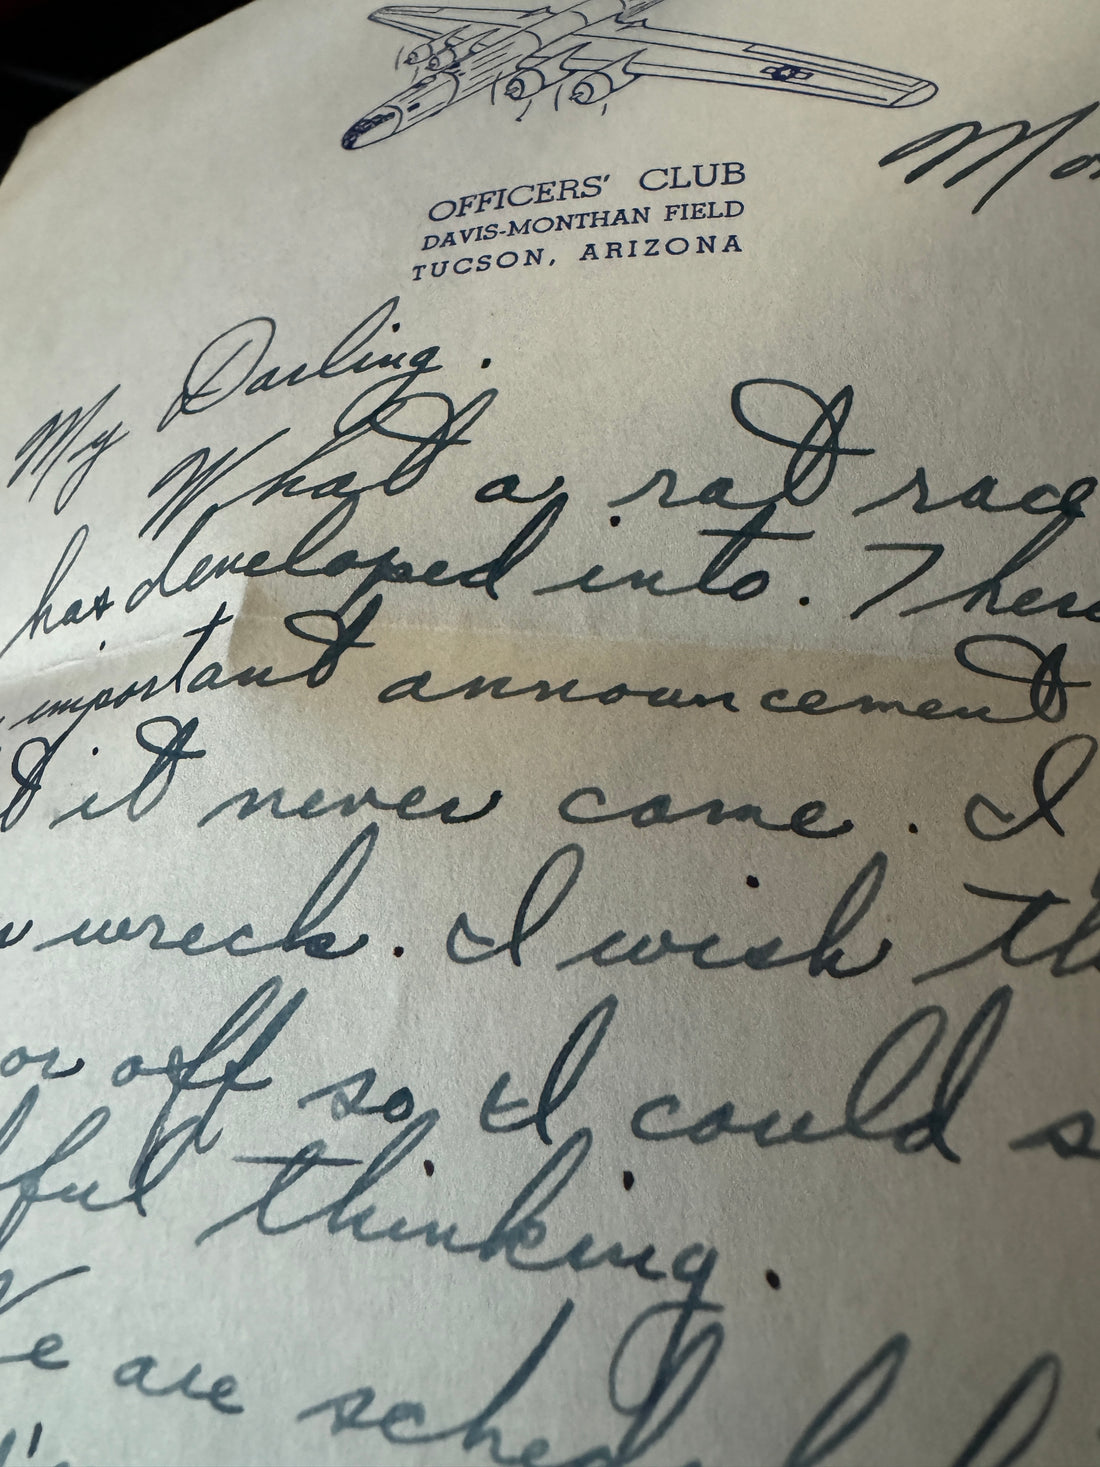 Mo
OFFICERS' CLUB
DAVIS-MONTHAN FIELD
TUCSON, ARIZONA
My Darling.
What a rat race
has developed into. There
important announcement
it never came. I
wreck. I wish th
or off so I could s
ful thinking.
We are sched